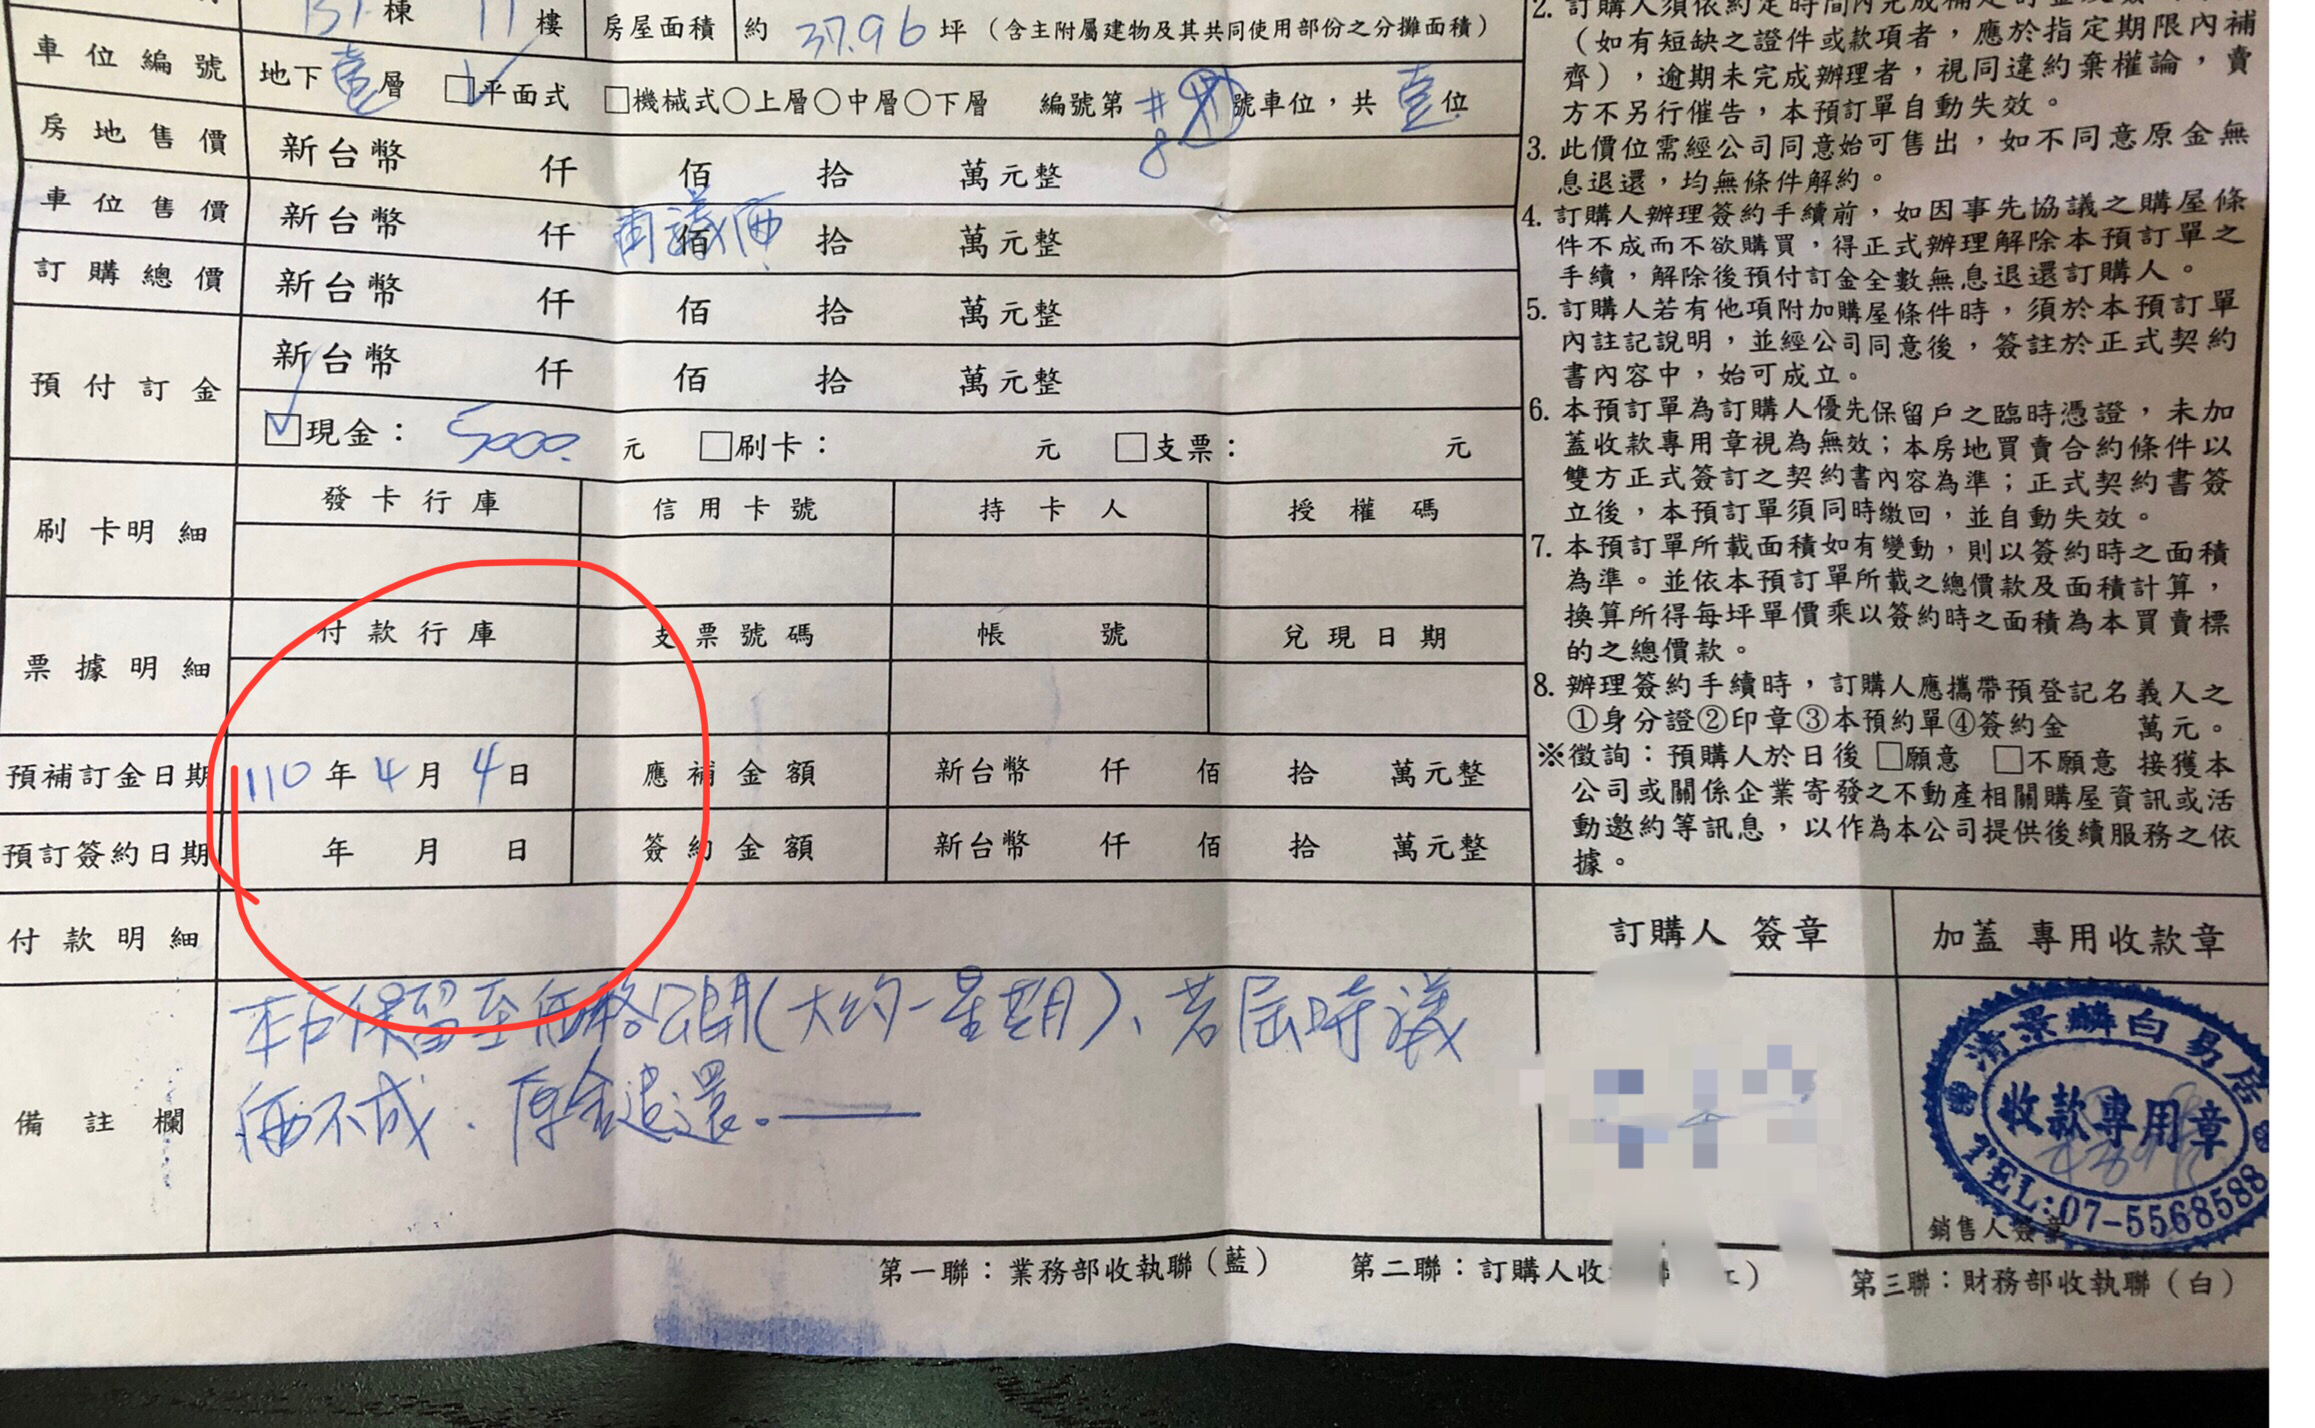 棟 11 樓 房屋面積 約 37.96 坪（含主附屬建物及其共同使用部份之分攤面積）
車位編號 地下 壹 層 □平面式 □機械式○上層○中層○下層 編號第 # 號車位，共 壹 位
8
房地售價 新台幣 仟 佰 拾 萬元整
車位售價 新台幣 仟 佰 拾 萬元整
再議價
訂購總價 新台幣 仟 佰 拾 萬元整
預付訂金 新台幣 仟 佰 拾 萬元整
☑現金： 5000. 元 □刷卡： 元 □支票： 元
刷卡明細 發卡行庫 信用卡號 持卡人 授權碼
票據明細 付款行庫 支票號碼 帳號 兌現日期
預補訂金日期 110 年 4 月 4 日 應補金額 新台幣 仟 佰 拾 萬元整
預訂簽約日期 年 月 日 簽約金額 新台幣 仟 佰 拾 萬元整
付款明細
備註欄
本戶保留至価格公開(大約一星期)、若屆時議
価不成、原金退還。
2. 訂購人須依約定時間內完成補足訂金及簽
（如有短缺之證件或款項者，應於指定期限內補
齊），逾期未完成辦理者，視同違約棄權論，賣
方不另行催告，本預訂單自動失效。
3. 此價位需經公司同意始可售出，如不同意原金無
息退還，均無條件解約。
4. 訂購人辦理簽約手續前，如因事先協議之購屋條
件不成而不欲購買，得正式辦理解除本預訂單之
手續，解除後預付訂金全數無息退還訂購人。
5. 訂購人若有他項附加購屋條件時，須於本預訂單
內註記說明，並經公司同意後，簽註於正式契約
書內容中，始可成立。
6. 本預訂單為訂購人優先保留戶之臨時憑證，未加
蓋收款專用章視為無效；本房地買賣合約條件以
雙方正式簽訂之契約書內容為準；正式契約書簽
立後，本預訂單須同時繳回，並自動失效。
7. 本預訂單所載面積如有變動，則以簽約時之面積
為準。並依本預訂單所載之總價款及面積計算，
換算所得每坪單價乘以簽約時之面積為本買賣標
的之總價款。
8. 辦理簽約手續時，訂購人應攜帶預登記名義人之
①身分證②印章③本預約單④簽約金 萬元。
※徵詢：預購人於日後□願意 □不願意 接獲本
公司或關係企業寄發之不動產相關購屋資訊或活
動邀約等訊息，以作為本公司提供後續服務之依
據。
訂購人 簽章 加蓋 專用收款章
清景麟白易居
收款專用章
TEL:07-5568588
銷售人簽章
第一聯：業務部收執聯（藍） 第二聯：訂購人收 ） 第三聯：財務部收執聯（白）